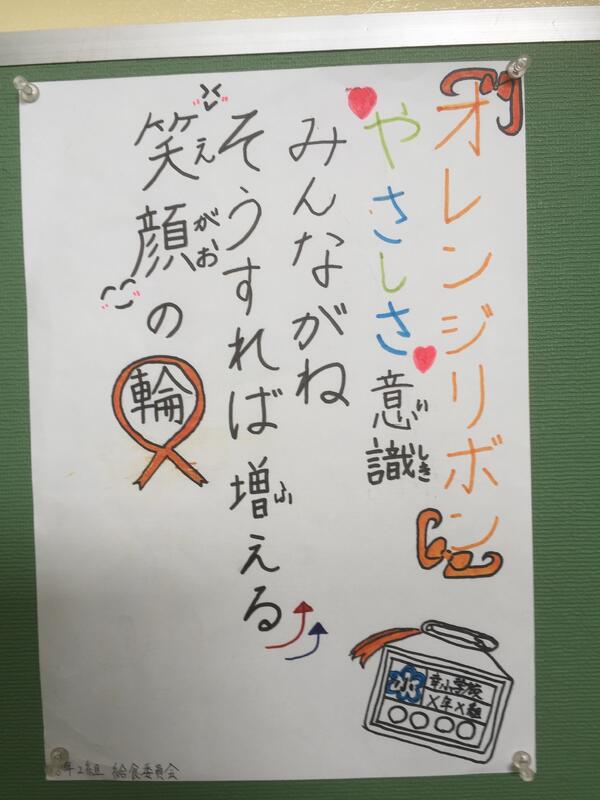 オレンジリボン
やさしさ意識
いしき
みんながね
そうすれば増える
ふ
笑顔の輪
えがお
幸小学校
×年×組
年2組 給食委員会